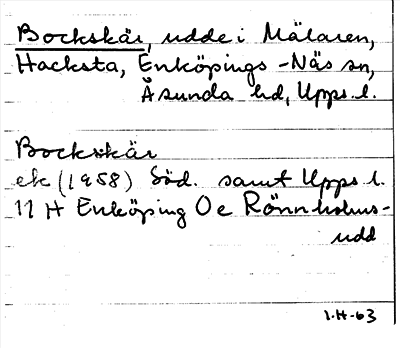 Bockskär, udde i Mälaren,
Hacksta, Enköpings-Näs sn,
Åsunda hd, Upps. l.
Bockskär
ek (1958) Söd. samt Upps. l.
11 H Enköping O e Rönnholms-
udd
1.H-63